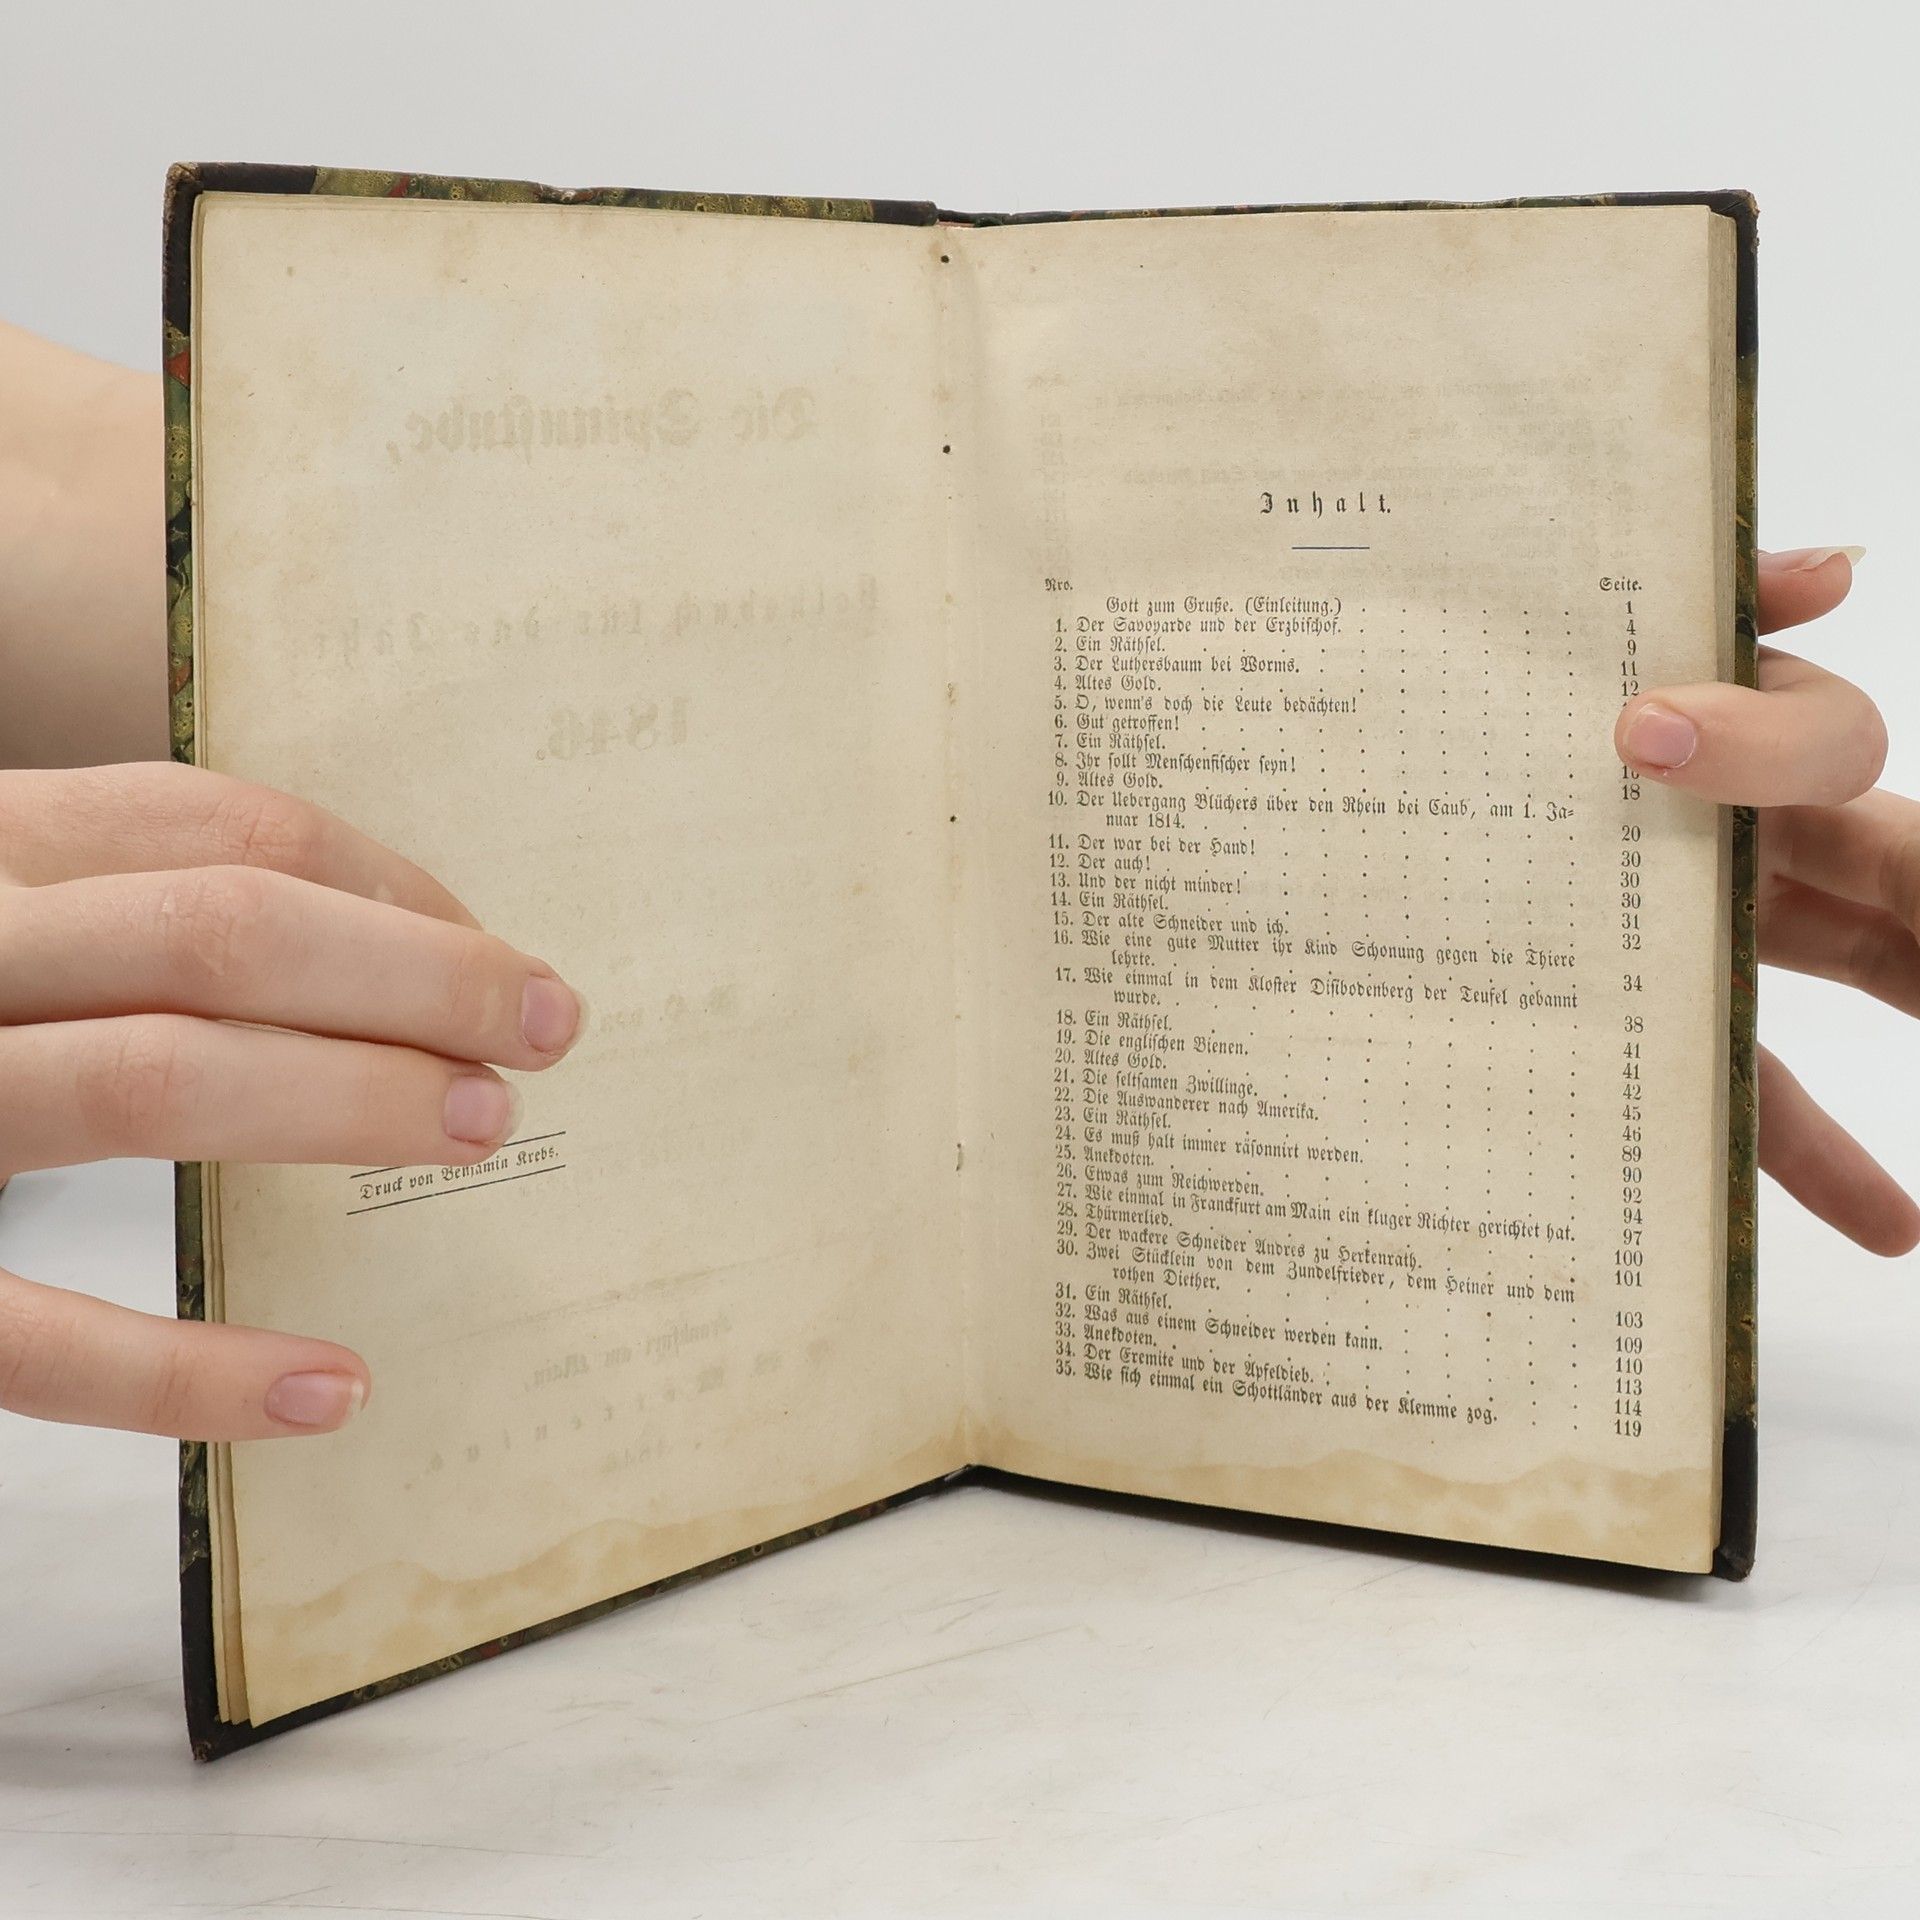 Die Spinnstube,
1846.
Druck von Benjamin Krebs.
Frankfurt am Main,
Inhalt.
Nro. Seite.
Gott zum Gruße. (Einleitung.) . . . . . . 1
1. Der Savoyarde und der Erzbischof. . . . . . . 4
2. Ein Räthsel. . . . . . . . . . 9
3. Der Luthersbaum bei Worms. . . . . . . . 11
4. Altes Gold. . . . . . . . . . 12
5. O, wenn's doch die Leute bedächten! . . . . .
6. Gut getroffen! . . . . . . . . . .
7. Ein Räthsel. . . . . . . . . .
8. Ihr sollt Menschenfischer seyn! . . . . . . . 16
9. Altes Gold. . . . . . . . . . 18
10. Der Uebergang Blüchers über den Rhein bei Caub, am 1. Ja-
nuar 1814. . . . . . . . . . 20
11. Der war bei der Hand! . . . . . . . . 30
12. Der auch! . . . . . . . . . . 30
13. Und der nicht minder! . . . . . . . . 30
14. Ein Räthsel. . . . . . . . . . 31
15. Der alte Schneider und ich. . . . . . . . 32
16. Wie eine gute Mutter ihr Kind Schonung gegen die Thiere
lehrte. . . . . . . . . . 34
17. Wie einmal in dem Kloster Disibodenberg der Teufel gebannt
wurde. . . . . . . . . . 38
18. Ein Räthsel. . . . . . . . . . 41
19. Die englischen Bienen. . . . . . . . . 41
20. Altes Gold. . . . . . . . . . 42
21. Die seltsamen Zwillinge. . . . . . . . . 45
22. Die Auswanderer nach Amerika. . . . . . . 46
23. Ein Räthsel. . . . . . . . . . 89
24. Es muß halt immer räsonnirt werden. . . . . . 90
25. Anekdoten. . . . . . . . . . 92
26. Etwas zum Reichwerden. . . . . . . . . 94
27. Wie einmal in Franckfurt am Main ein kluger Richter gerichtet hat. 97
28. Thürmerlied. . . . . . . . . . 100
29. Der wackere Schneider Andres zu Herkenrath. . . . . 101
30. Zwei Stücklein von dem Zundelfrieder, dem Heiner und dem
rothen Diether. . . . . . . . . 103
31. Ein Räthsel. . . . . . . . . . 109
32. Was aus einem Schneider werden kann. . . . . . 110
33. Anekdoten. . . . . . . . . . 113
34. Der Eremite und der Apfeldieb. . . . . . . . 114
35. Wie sich einmal ein Schottländer aus der Klemme zog. . . 119